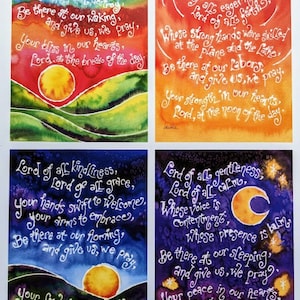 Be there at our waking,
and give us, we pray,
Your bliss in our hearts,
Lord, at the break of the day
Lord of all faith,
Whose strong hands were skilled
at the plane and the lathe,
Be there at our labours
and give us, we pray,
Your strength in our hearts,
Lord, at the noon of the day.
Lord of all kindliness,
Lord of all grace,
your hands swift to welcome,
your arms to embrace,
Be there at our homing,
and give us, we pray,
Lord of all gentleness,
Lord of all calm,
Whose voice is
contentment,
whose presence is balm,
Be there at our sleeping,
and give us, we pray,
Your peace in our hearts,